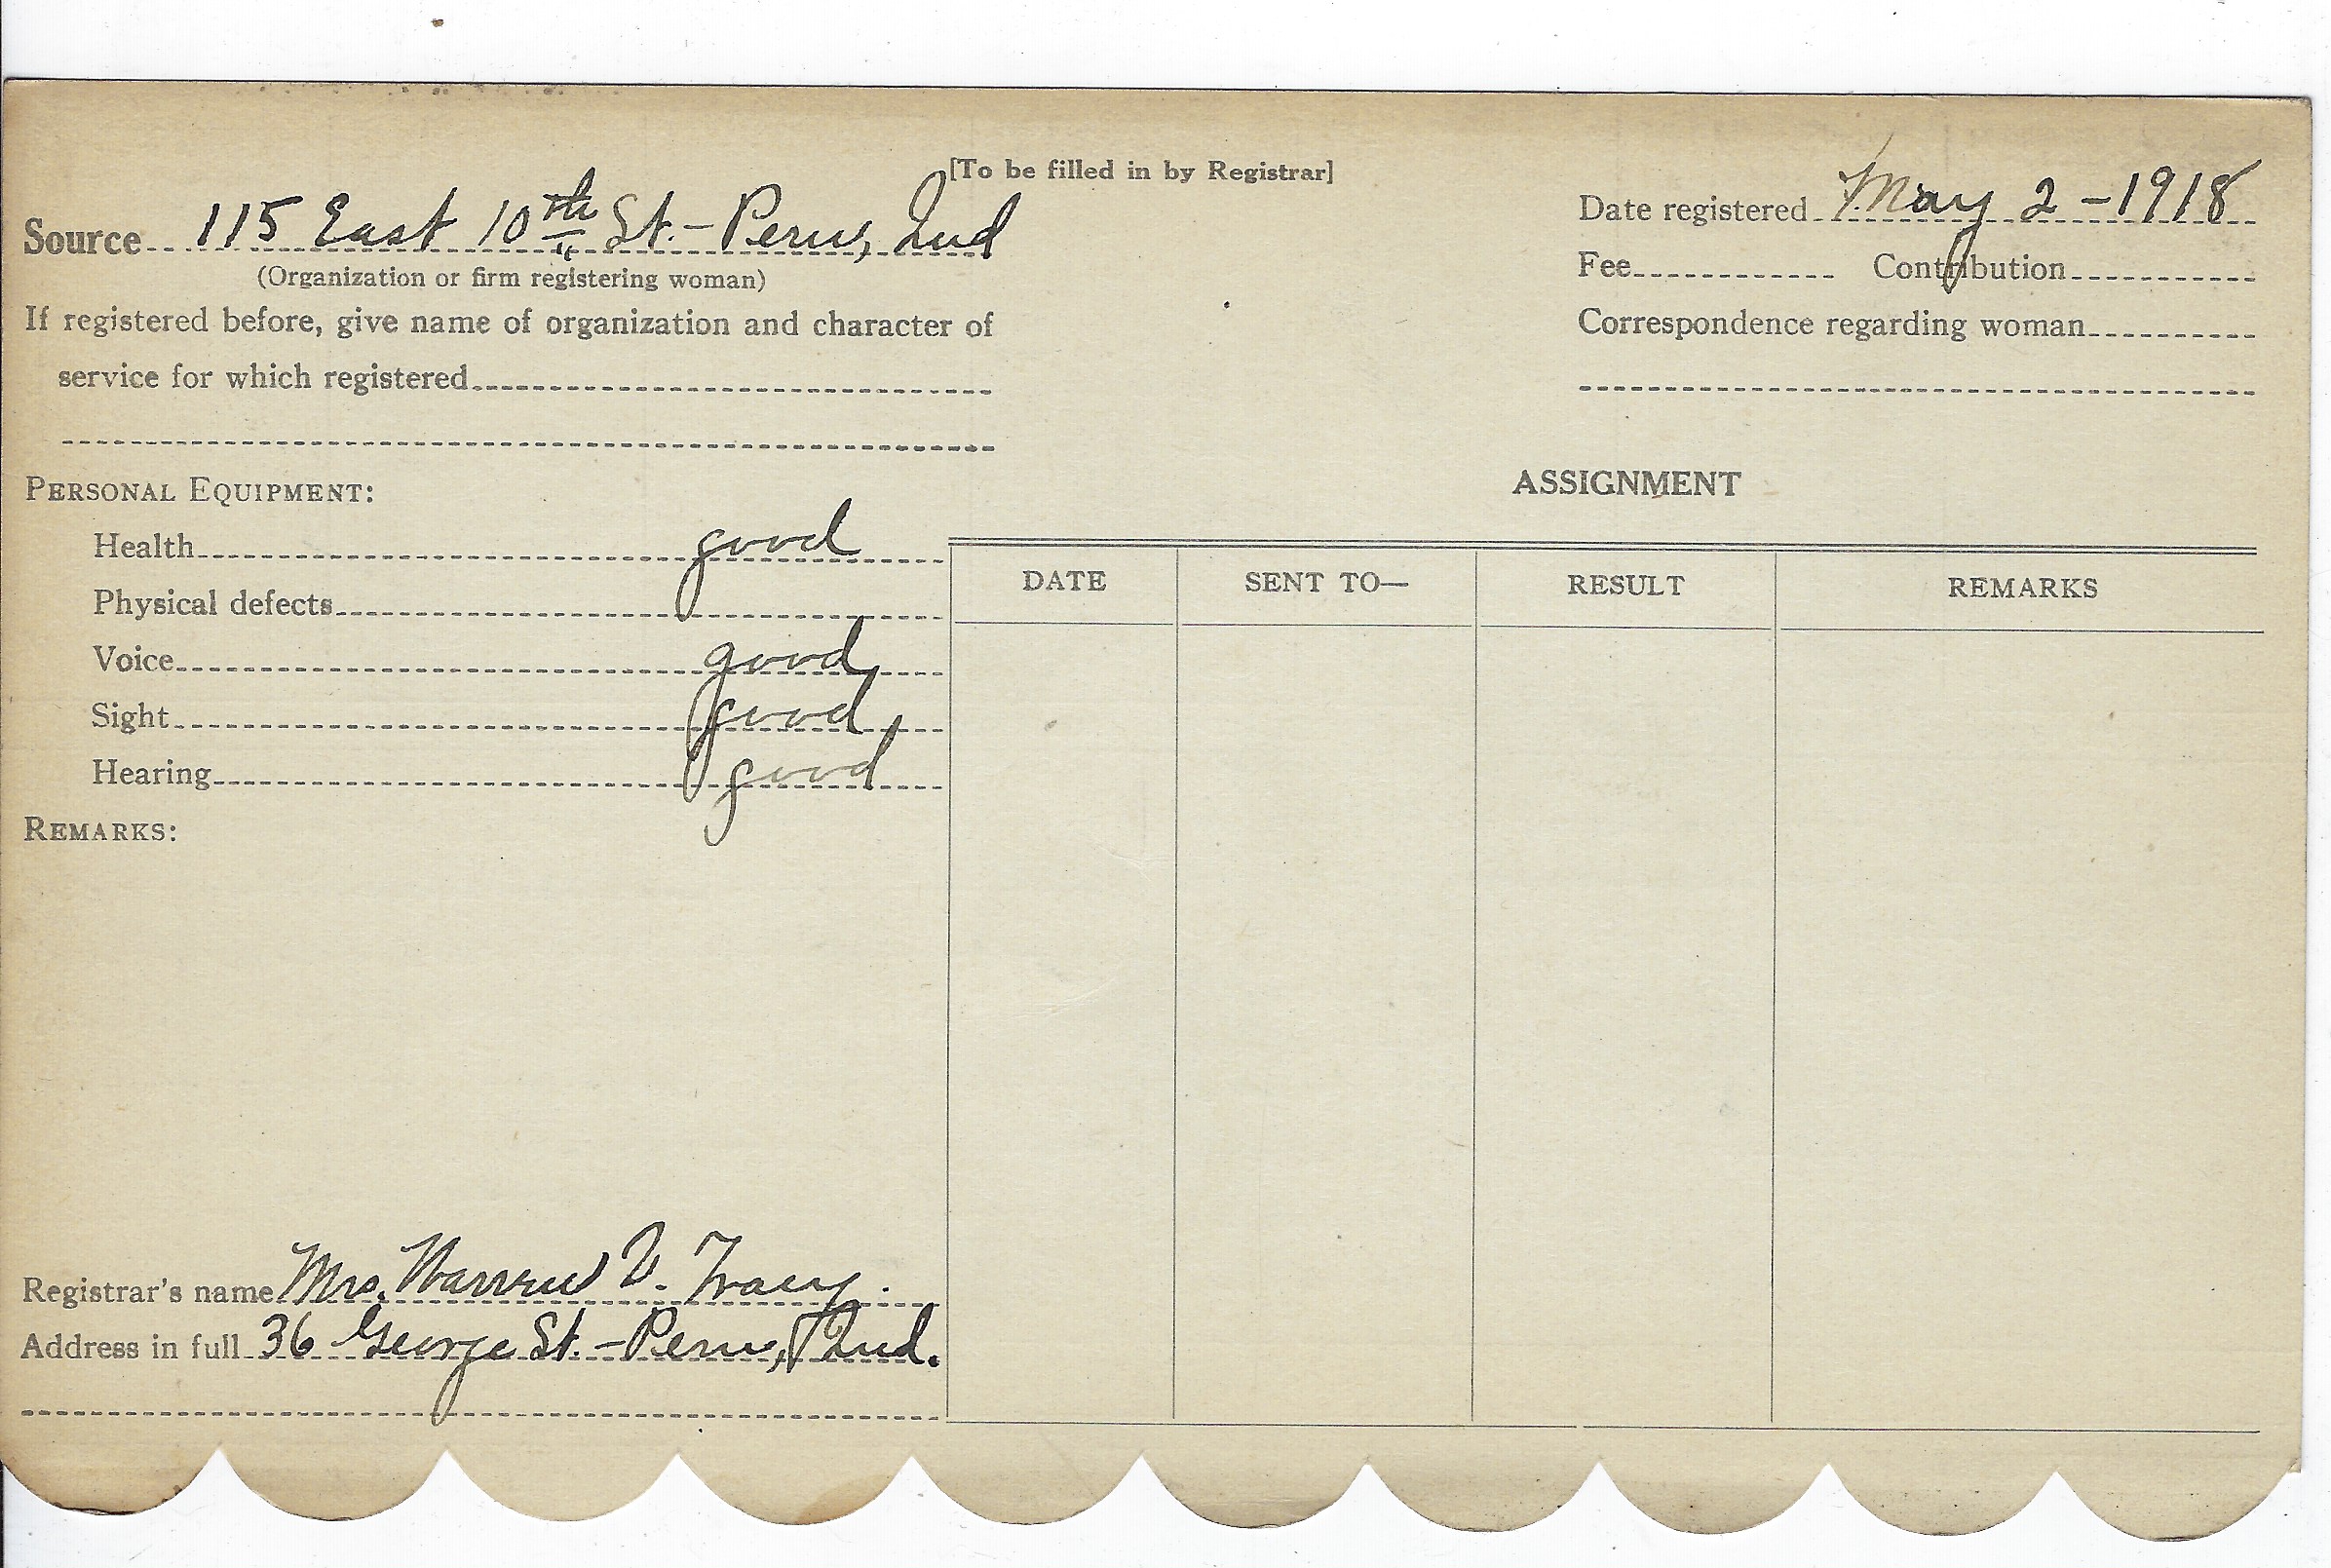 [To be filled in by Registrar]
Source 115 East 10th St. - Peru, Ind
(Organization or firm registering woman)
If registered before, give name of organization and character of
service for which registered
Date registered May 2 - 1918
Fee Contribution
Correspondence regarding woman
PERSONAL EQUIPMENT:
Health good
Physical defects
Voice good
Sight good
Hearing good
REMARKS:
ASSIGNMENT
DATE SENT TO— RESULT REMARKS
Registrar's name Mrs. Warren V. Tracy.
Address in full 36 George St. - Peru, Ind.